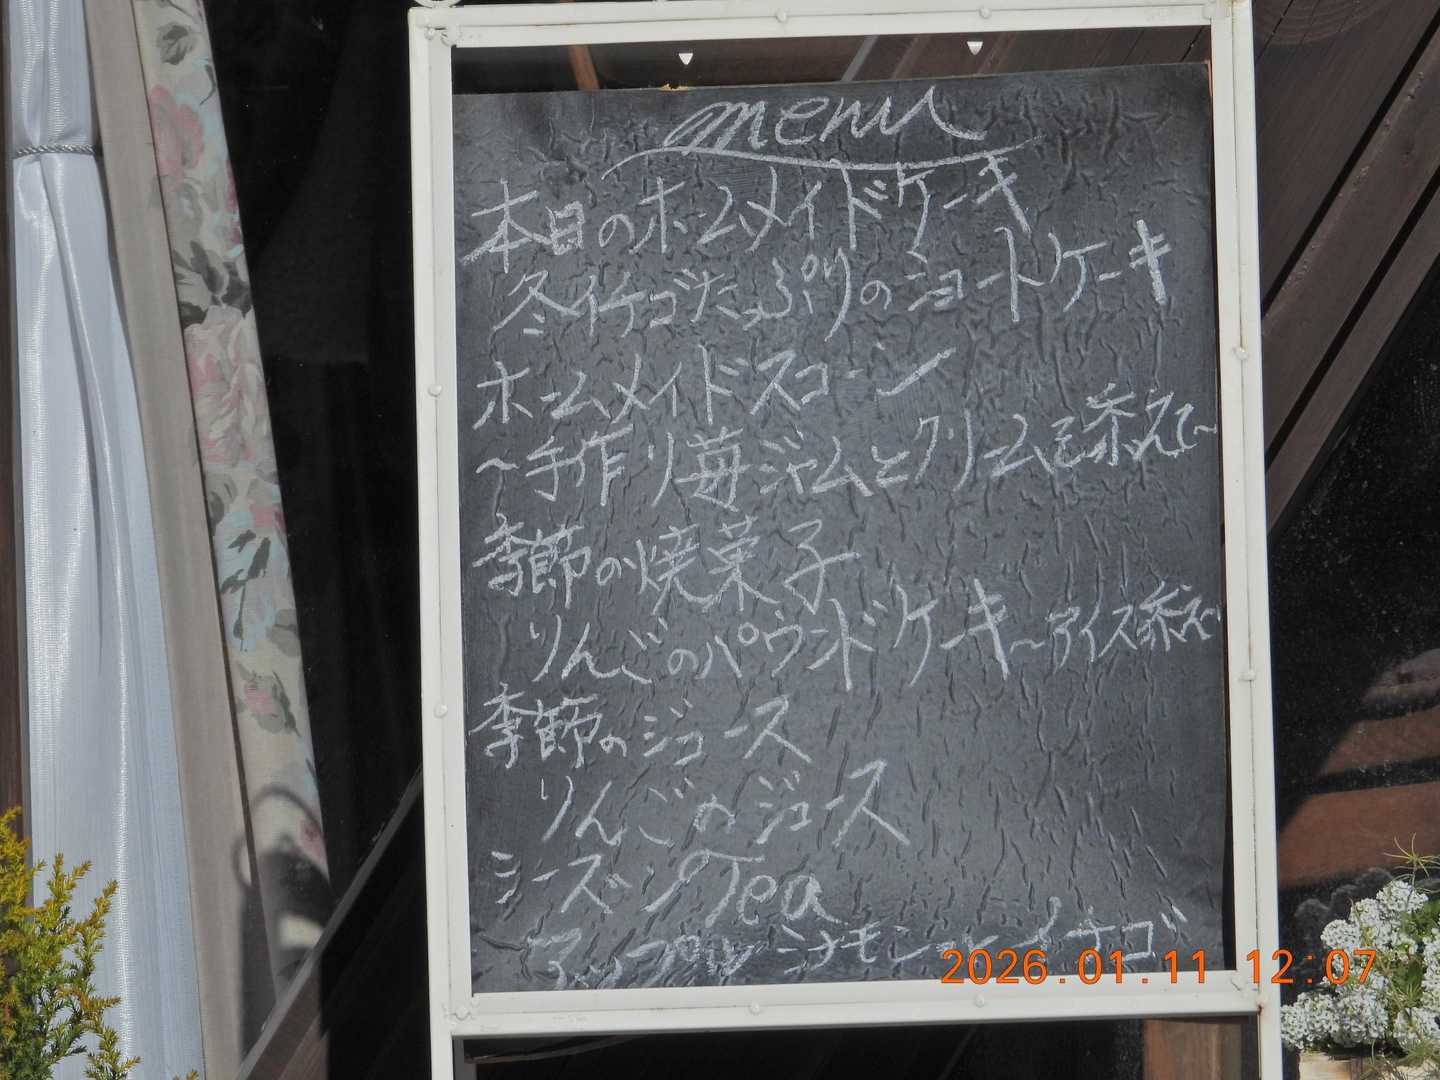 menu
本日のホームメイドケーキ
冬イチゴたっぷりのショートケーキ
ホームメイドスコーン
～手作り苺ジャムとクリームを添えて～
季節の焼菓子
りんごのパウンドケーキ～アイス添え～
季節のジュース
りんごのジュース
シーズンTea
アップルシナモン イチゴ
2026.01.11 12:07